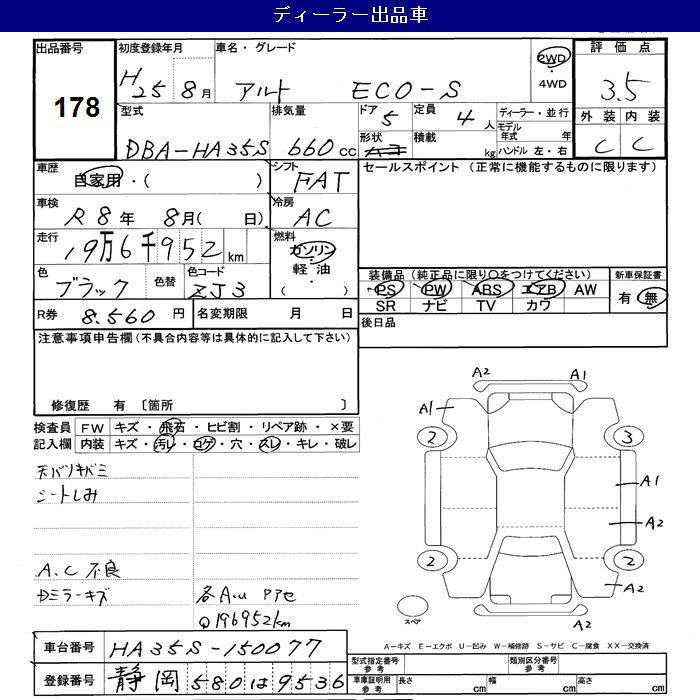 ディーラー出品車
出品番号
178
初度登録年月
H 25 8月
車名・グレード
アルト ECO-S
2WD
4WD
評価点
3.5
外装 内装
C C
型式
DBA-HA35S
排気量
660cc
ドア 5
形状
定員 4人
積載 kg
ディーラー・並行
モデル年式 年
ハンドル 左・右
車歴
自家用・( )
シフト
FAT
セールスポイント (正常に機能するものに限ります)
車検
R 8年 8月( 日)
冷房
AC
走行
19万6千952km
燃料
ガソリン・軽油・( )
色
ブラック
色替
色コード
ZJ3
装備品 (純正品に限り○をつけてください)
PS PW ABS エアB AW
SR ナビ TV カワ
新車保証書
有 無
R券 8.560円
名変期限 月 日
後日品
注意事項申告欄 (不具合内容等は具体的に記入して下さい)
修復歴 有 〔箇所 〕
検査員記入欄
FW キズ・飛石・ヒビ割・リペア跡・×要
内装 キズ・汚レ・コゲ・穴・スレ・キレ・破レ
天バリキバミ
シートしみ
A.C 不良
Dミラーキズ
各A.u Pアセ
Q196952km
A2 A1
A1
2 3
A1
A2
2 2
A2
A2
スペア
A-キズ E-エクボ U-凹み W-補修跡 S-サビ C-腐食 XX-交換済
車台番号 HA35S-150077
登録番号 静岡 580 は 9536
型式指定番号 参考
類別区分番号 参考
車庫証明用 参考
長さ cm 幅 cm 高さ cm